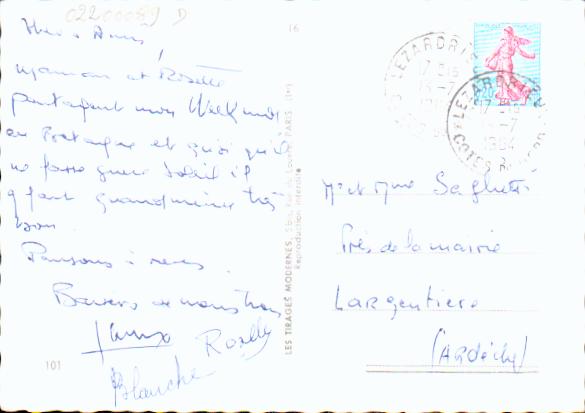 02200089 D
16
Chers Amis,
Maman et Roselly
partagent mon Week end
en Bretagne et quoi qu'il
ne fasse guère soleil il
y fait quand même très
bon.
Pensons à vous.
Baisers de nous trois
Roselly
Blanche
101
LES TIRAGES MODERNES, 5 bis, Rue du Louvre PARIS (1er)
Reproduction interdite
LEZARDRIEUX
17 H 15
LEZARDRIEUX
-7
1964
COTES DU NORD
Mr et Mme Saglietti
Près de la mairie
Largentière
(Ardèche)